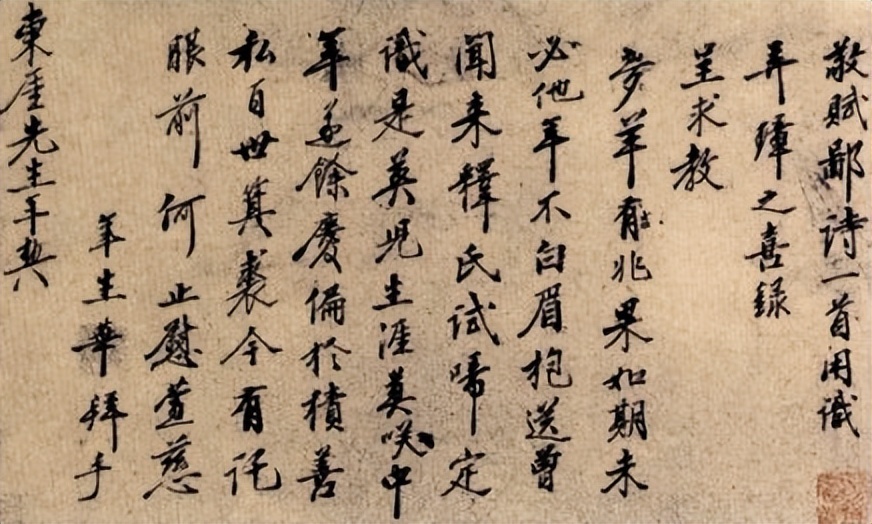 敬賦鄙詩一首用識
弄璋之喜錄
呈求教
夢羊有兆果如期未
必他年不白眉抱送曾
聞来釋氏試啼定
識是英児生涯莫咲中
年遲餘慶偏於積善
私百世箕裘今有託
眼前何止慰萱慈
年生華拜手
東厓先生年契